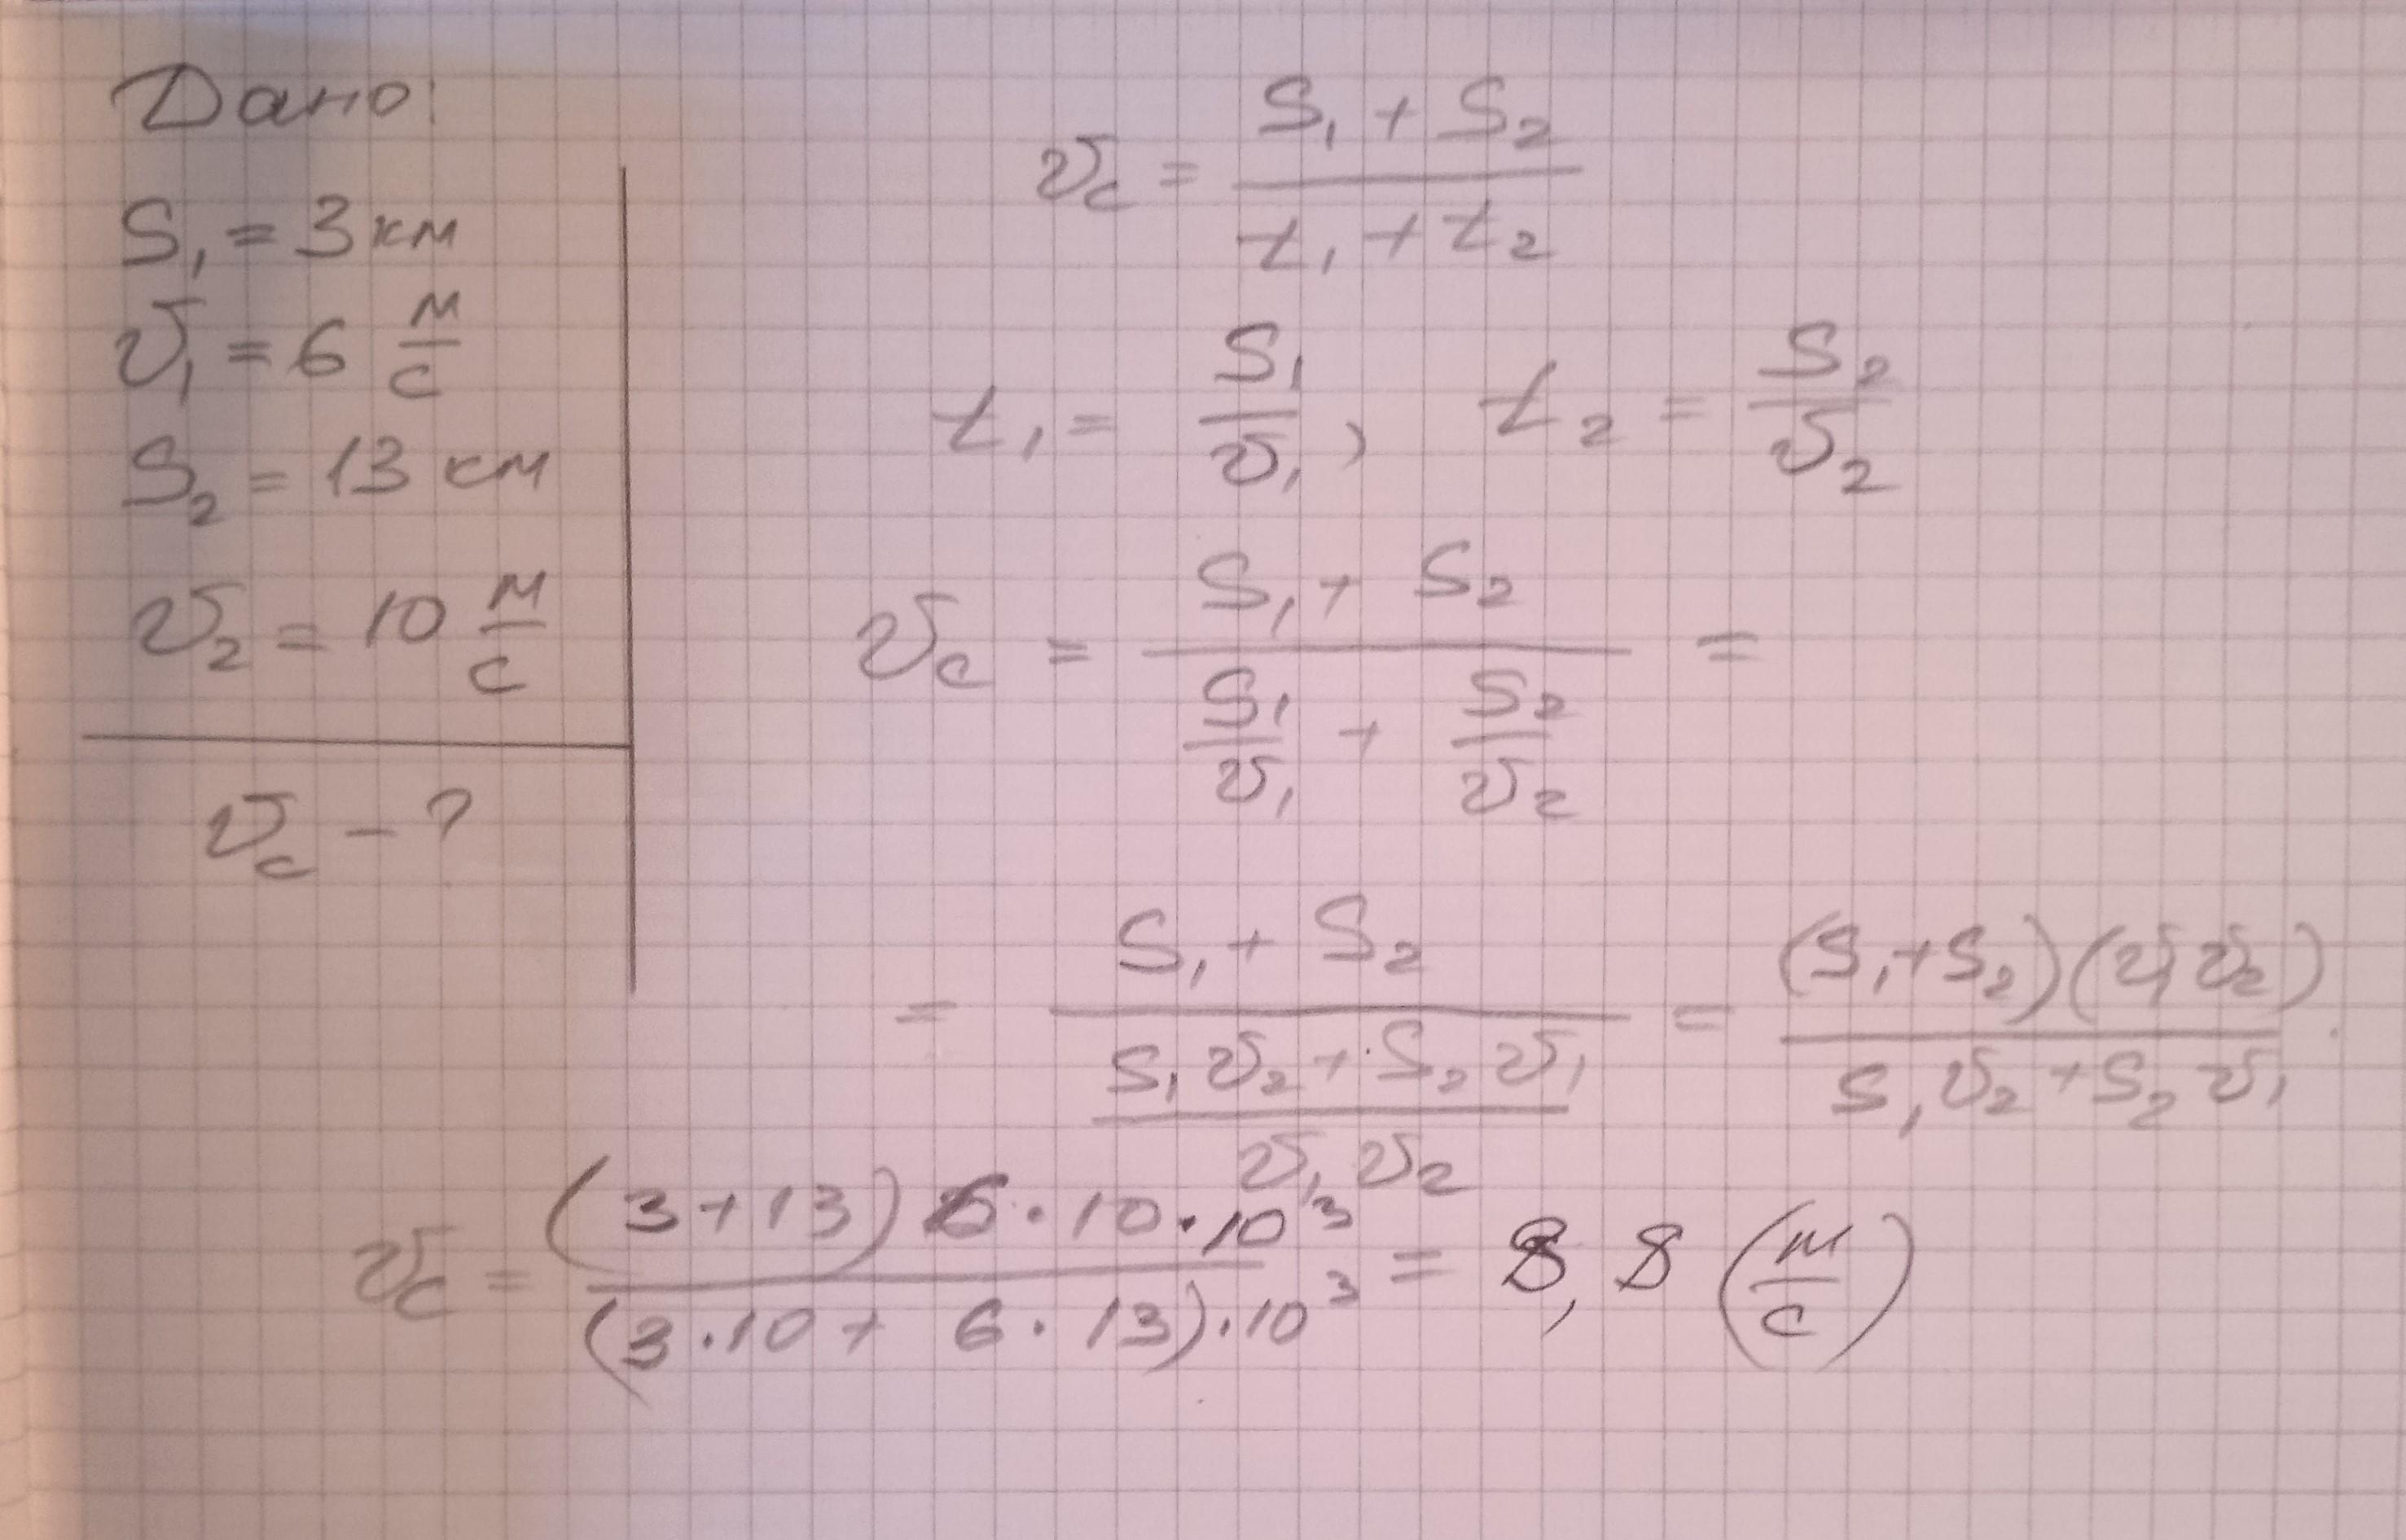 Дано:
S₁ = 3 км
υ₁ = 6 м/с
S₂ = 13 км
υ₂ = 10 м/с
υc - ?
υc = (S₁ + S₂)/(t₁ + t₂)
t₁ = S₁/υ₁, t₂ = S₂/υ₂
υc = (S₁ + S₂)/(S₁/υ₁ + S₂/υ₂) =
= (S₁ + S₂)/((S₁υ₂ + S₂υ₁)/(υ₁υ₂)) = ((S₁+S₂)(υ₁υ₂))/(S₁υ₂ + S₂υ₁).
υc = ((3+13)6·10·10³)/((3·10 + 6·13)·10³) = 8,8 (м/с)